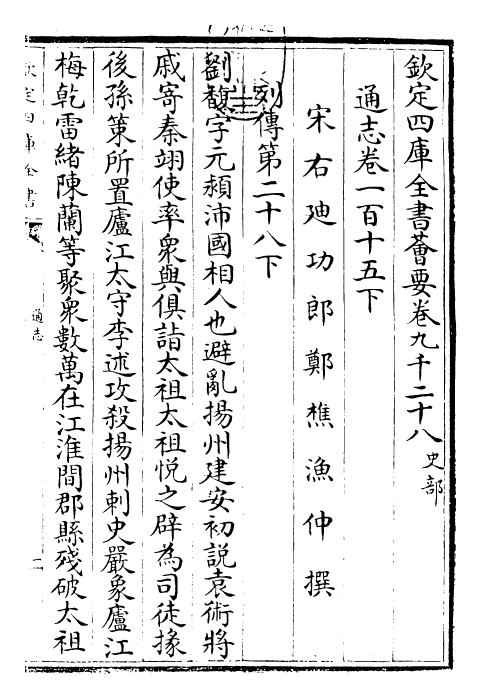 欽定四庫全書薈要卷九千二十八 史部
通志卷一百十五下
宋右迪功郎鄭樵漁仲撰
列傳第二十八下
劉馥字元頴沛國相人也避亂揚州建安初說袁術將
戚寄秦翊使率衆與俱詣太祖太祖悅之辟為司徒掾
後孫策所置廬江太守李述攻殺揚州刺史嚴象廬江
梅乾雷緒陳蘭等聚衆數萬在江淮間郡縣殘破太祖
欽定四庫全書
通志